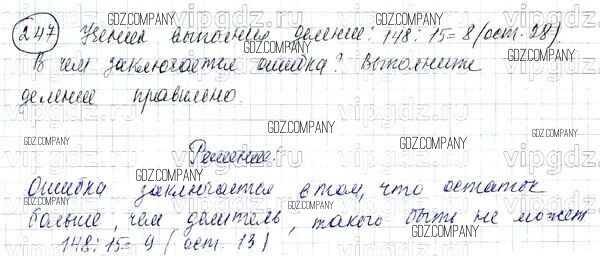 247 Ученик выполнил деление: 148 : 15 = 8 (ост. 28).
В чем заключается ошибка? Выполните
деление правильно.
Решение:
Ошибка заключается в том, что остаток
больше, чем делитель, такого быть не может
148 : 15 = 9 (ост. 13)